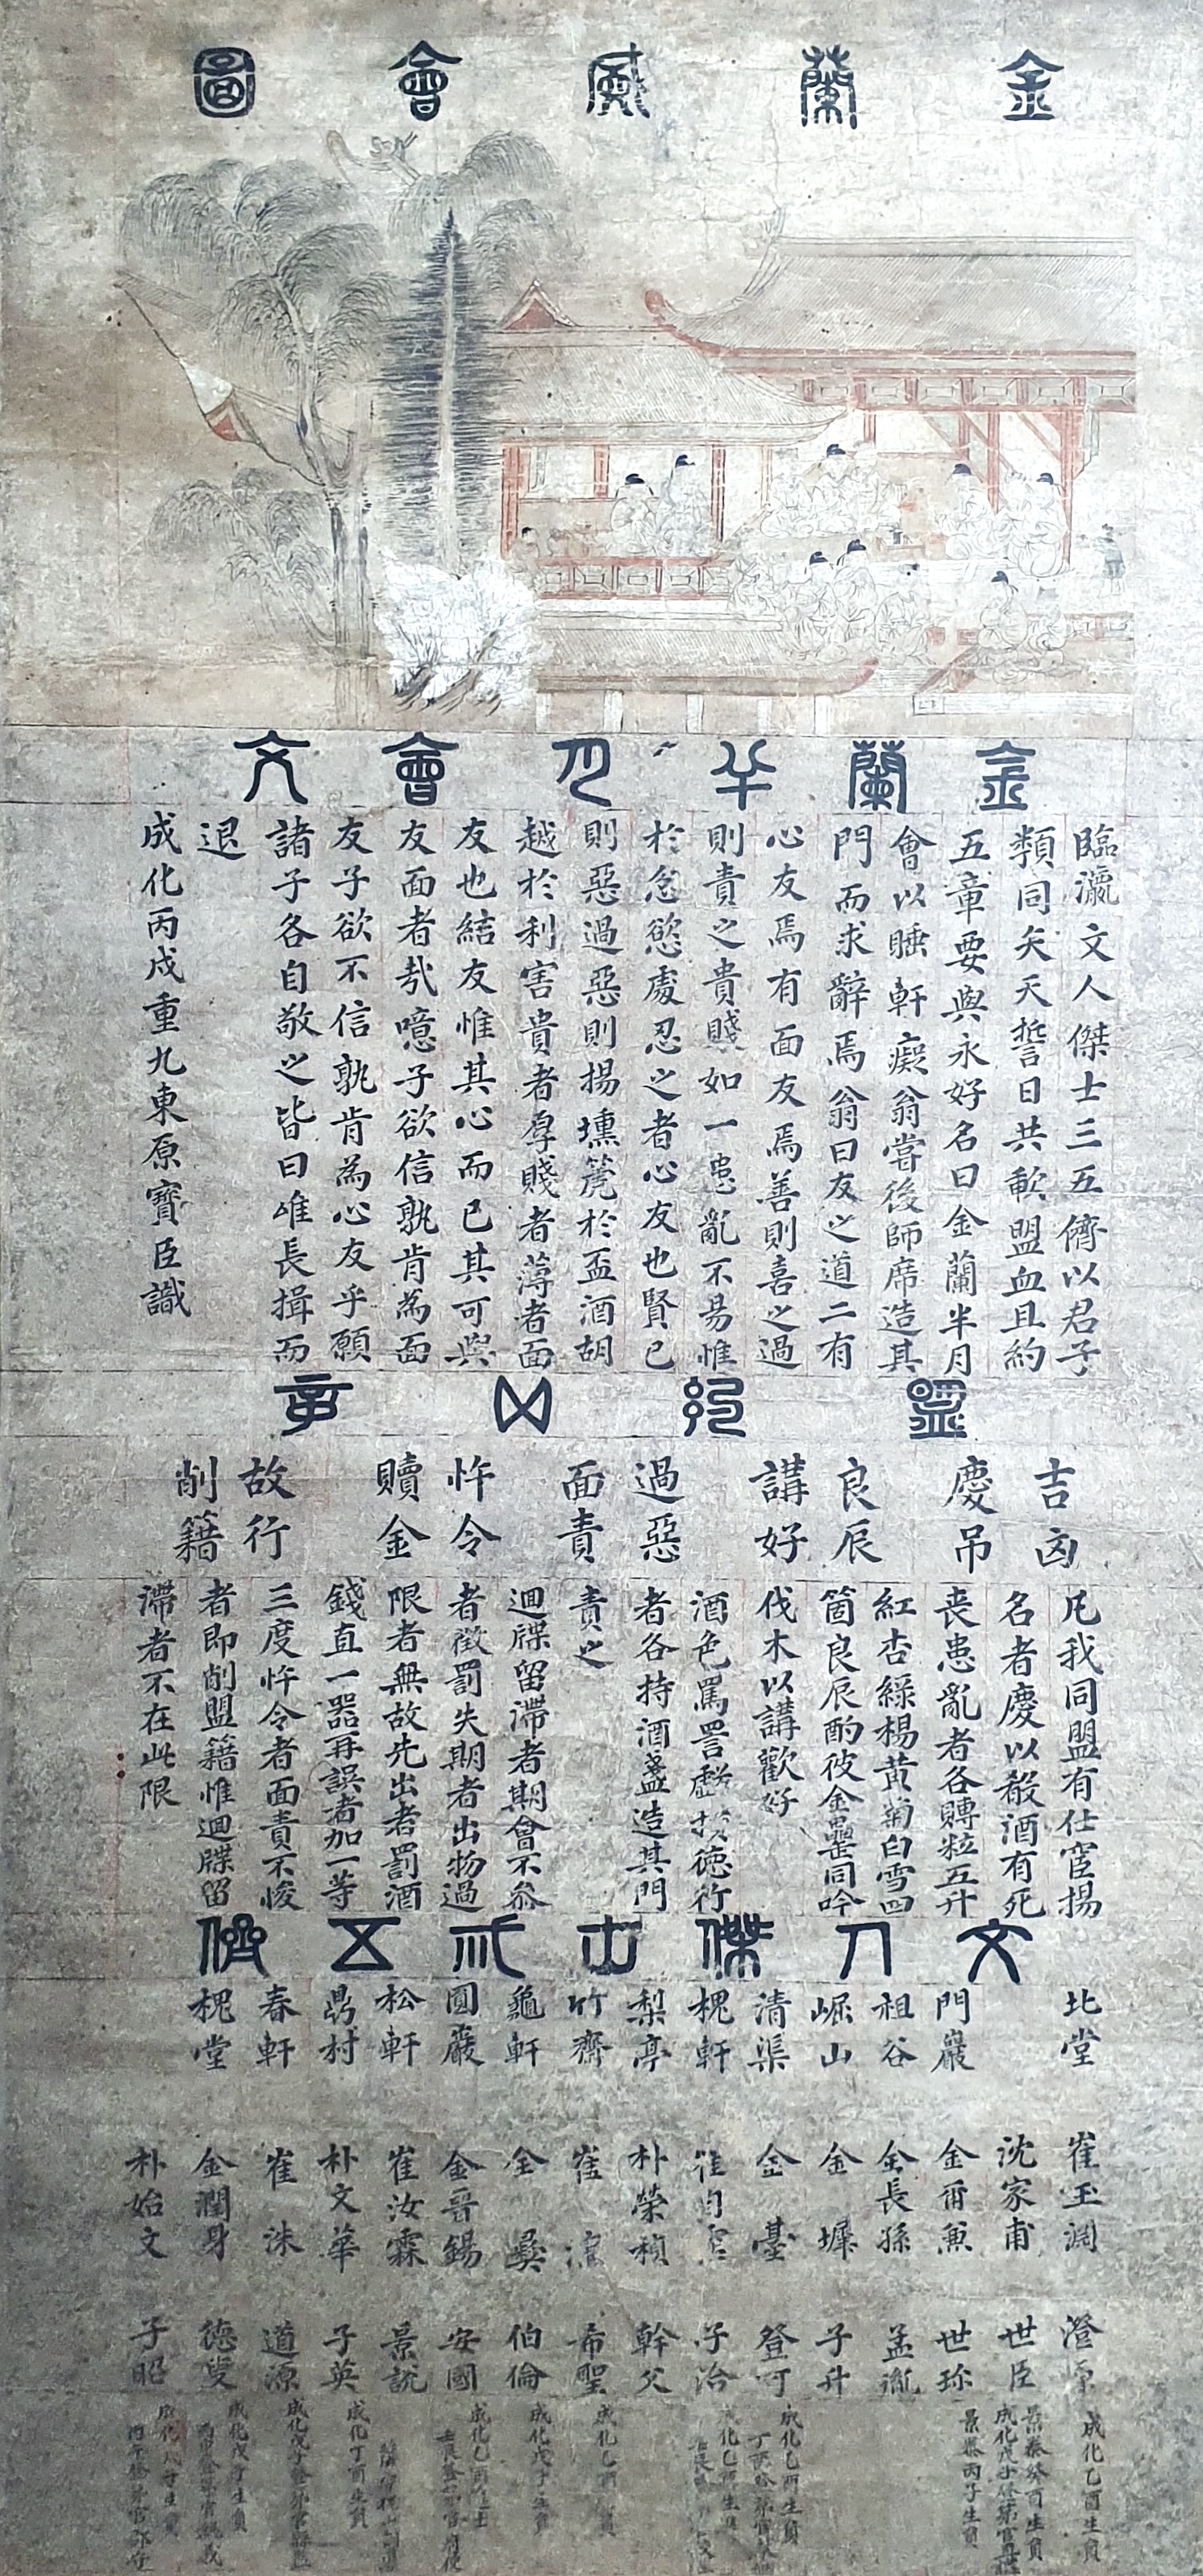 金蘭盛會圖
金蘭半月會文
臨瀛文人傑士三五儕以君子
類同矢天誓日共歃盟血且約
五章要與永好名曰金蘭半月
會以睡軒癡翁嘗後師席造其
門而求辭焉翁曰友之道二有
心友焉有面友焉善則喜之過
則責之貴賤如一患亂不易惟
於忿慾處忍之者心友也賢己
則惡過惡則揚壎篪於盃酒胡
越於利害貴者厚賤者薄者面
友也結友惟其心而已其可與
友面者哉噫子欲信孰肯為面
友子欲不信孰肯為心友乎願
諸子各自敬之皆曰唯長揖而
退
成化丙戌重九東原寶臣識
盟約五章
吉凶
慶吊
良辰
講好
過惡
面責
忤令
贖金
故行
削籍
凡我同盟有仕宦揚
名者慶以殽酒有死
喪患亂者各賻粒五升
紅杏綠楊黃菊白雪四
箇良辰酌彼金罍同吟
伐木以講歡好
酒色罵詈戲 德行
者各持酒盞造其門
責之
迴牒留滯者期會不參
者徵罰失期者出物過
限者無故先出者罰酒
錢直一器再誤者加一等
三度忤令者面責不悛
者即削盟籍惟迴牒留
滯者不在此限
文人傑士三五儕
北堂 崔玉淵 澄源 成化乙酉生員
沈家甫 世臣 景泰癸酉生員
門巖 金爾兼 世珎 景泰丙子生員
祖谷 全長孫 孟胤
崛山 金墀 子升
清渠 金臺 登可 成化乙酉生員
槐軒 崔自 子治
梨亭 朴榮禎 幹父
竹齋 崔 希聖 成化乙酉
龜軒 全彝 伯倫 成化戊子生員
圓巖 金晋錫 安國 成化乙酉
松軒 崔汝霖 景說
鼎村 朴文華 子英 成化丁酉生員
春軒 崔洙 道源 成化戊子
槐堂 金潤身 德叟 成化戊子生員
朴始文 子昭 成化戊子生員